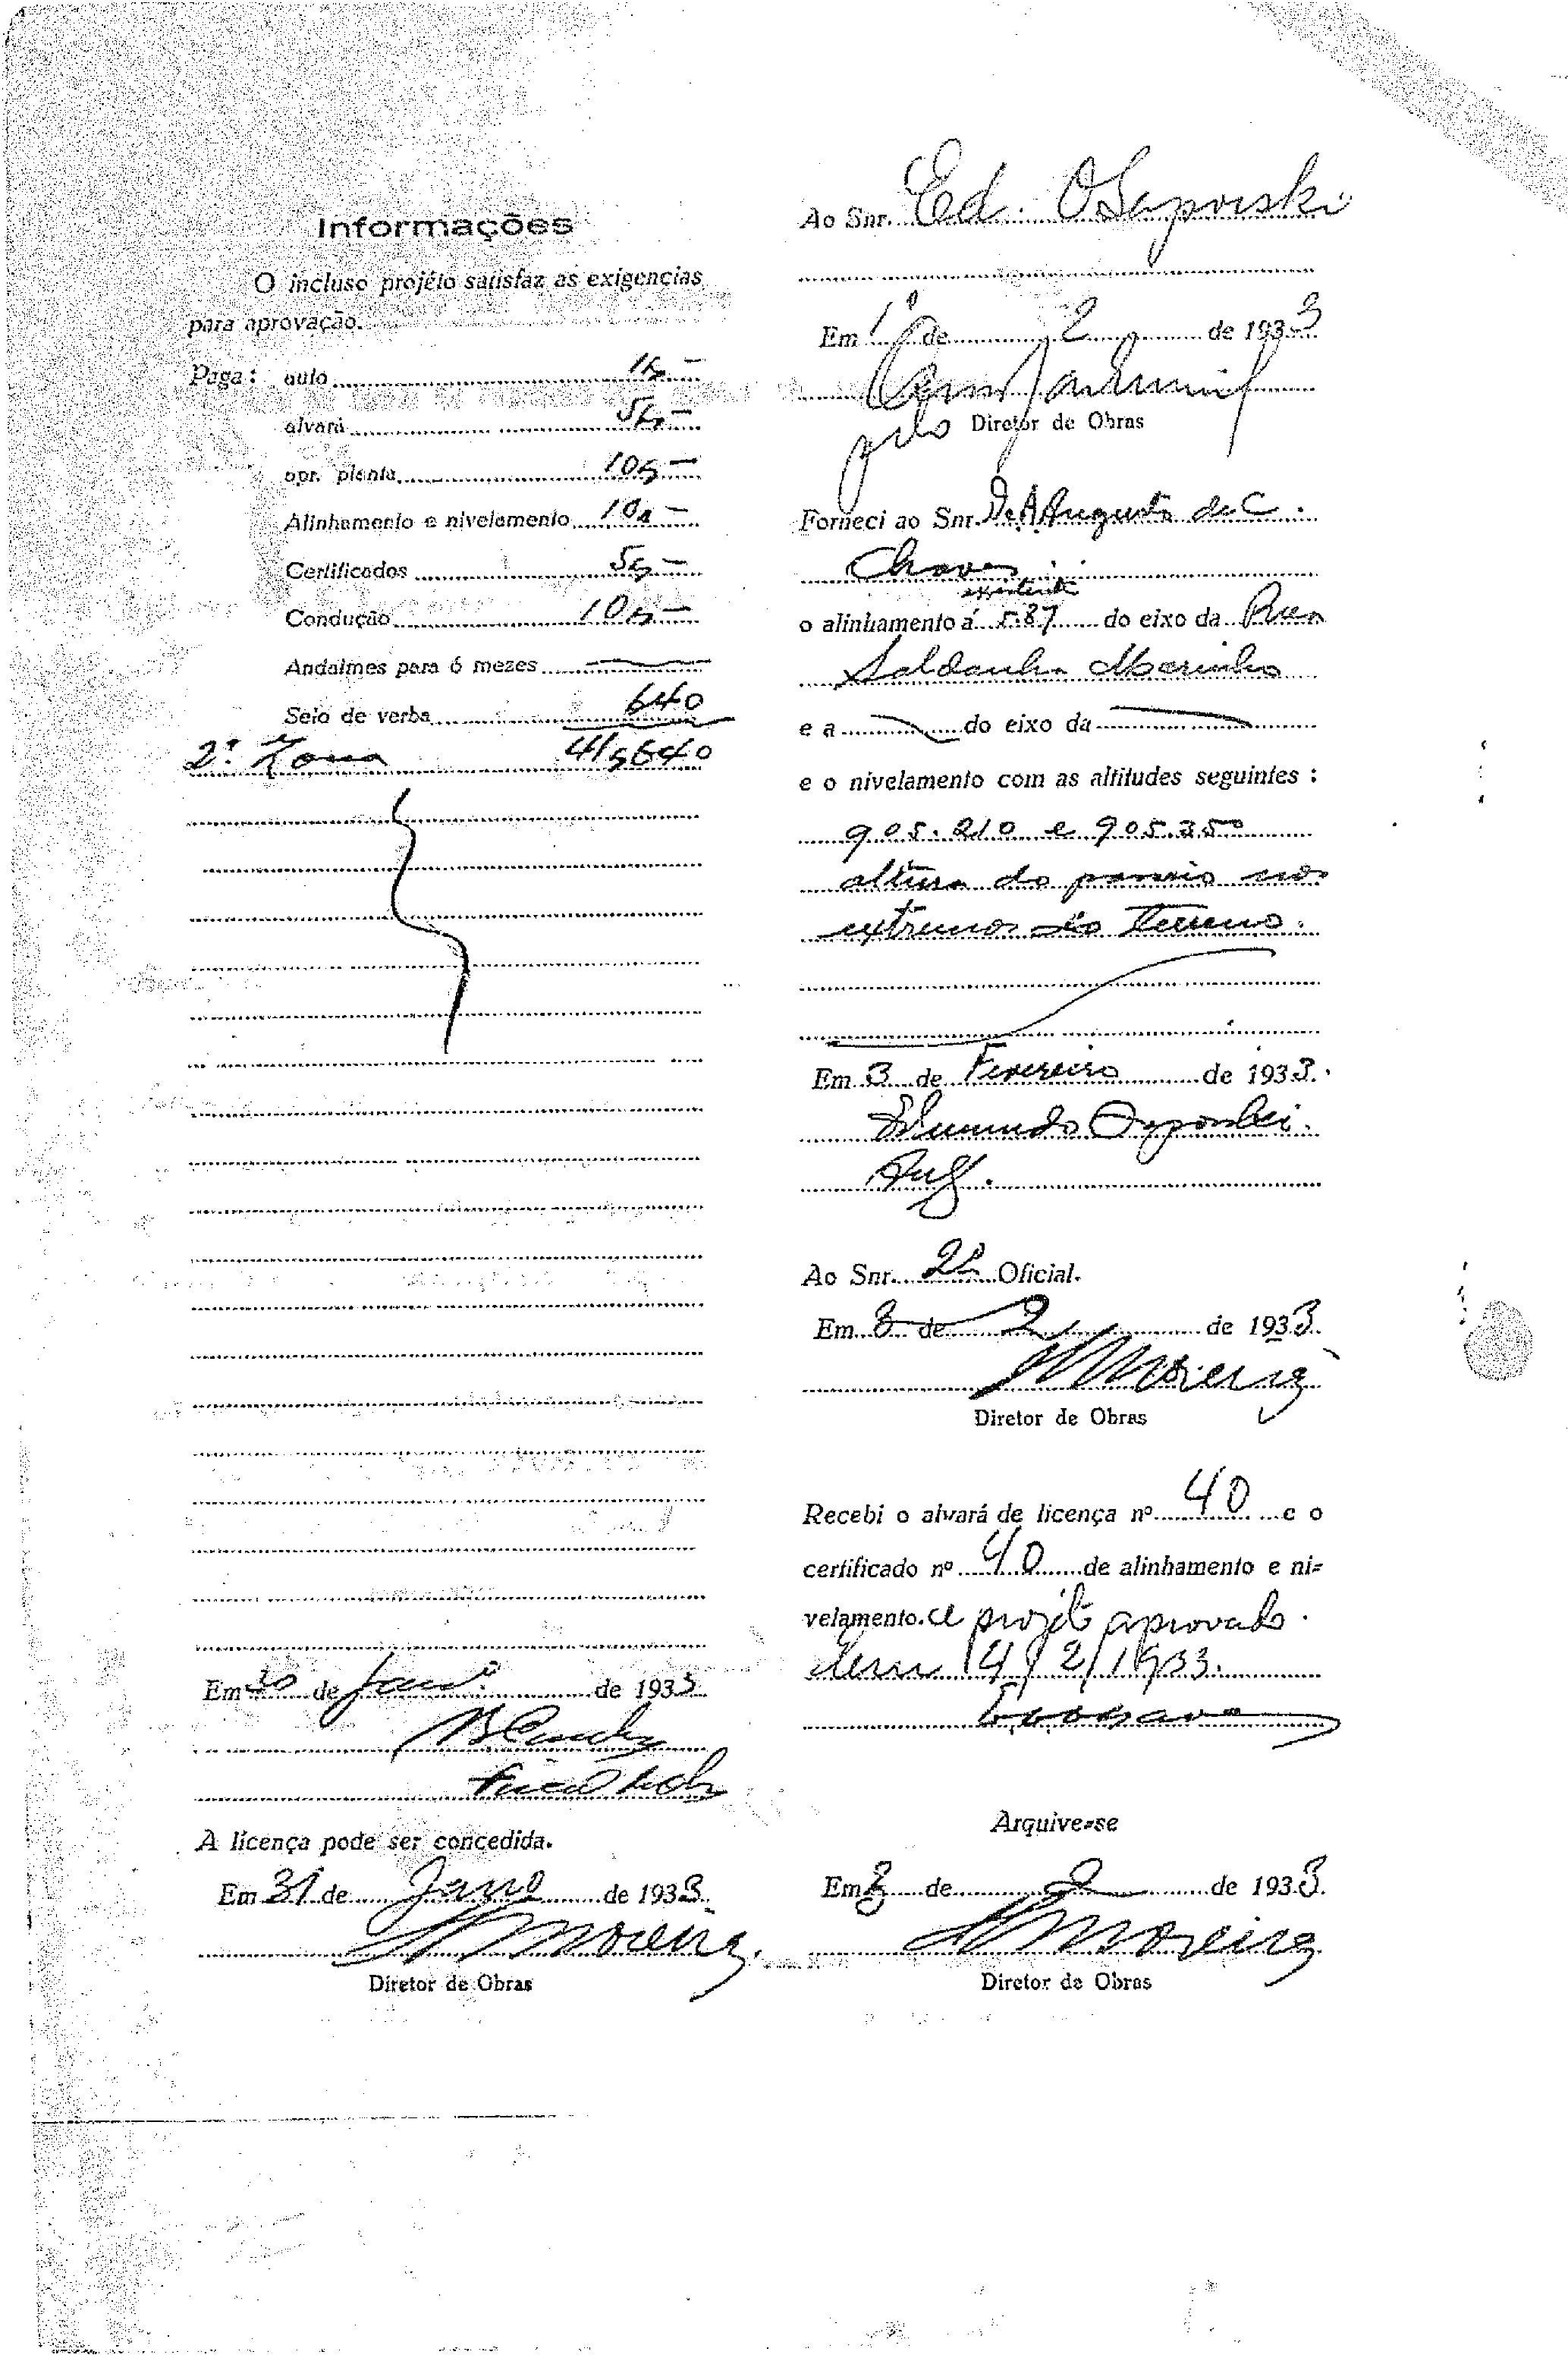 Informações
O incluso projéto satisfaz as exigencias
para aprovação.
Paga: auto 1$–
alvará 5$–
apr. planta 10$–
Alinhamento e nivelamento 10$–
Certificados 5$–
Condução 10$–
Andaimes para 6 mezes
Selo de verba 640
2ª Zona 41$640
Em 30 de Janº de 1933
Fiscal
A licença pode ser concedida.
Em 31 de Janº de 1933
Moreira
Diretor de Obras
Ao Snr. Ed. OSsapovski
Em 1º de 2 de 1933
pelo Diretor de Obras
Forneci ao Snr. Augusto de C.
Chaves
existente
o alinhamento á 5.87 do eixo da Rua
Saldanha Marinho
e a do eixo da
e o nivelamento com as altitudes seguintes :
905.210 e 905.350
altura do passeio nos
extremos do Terreno.
Em 3 de Fevereiro de 1933.
Edmundo
Ao Snr. 2º Oficial.
Em 3 de 2 de 1933.
Moreira
Diretor de Obras
Recebi o alvará de licença nº 40 e o
certificado nº 40 de alinhamento e ni-
velamento. e projéto aprovado.
Em 14/2/1933.
Arquive-se
Em 3 de 2 de 1933.
Moreira
Diretor de Obras